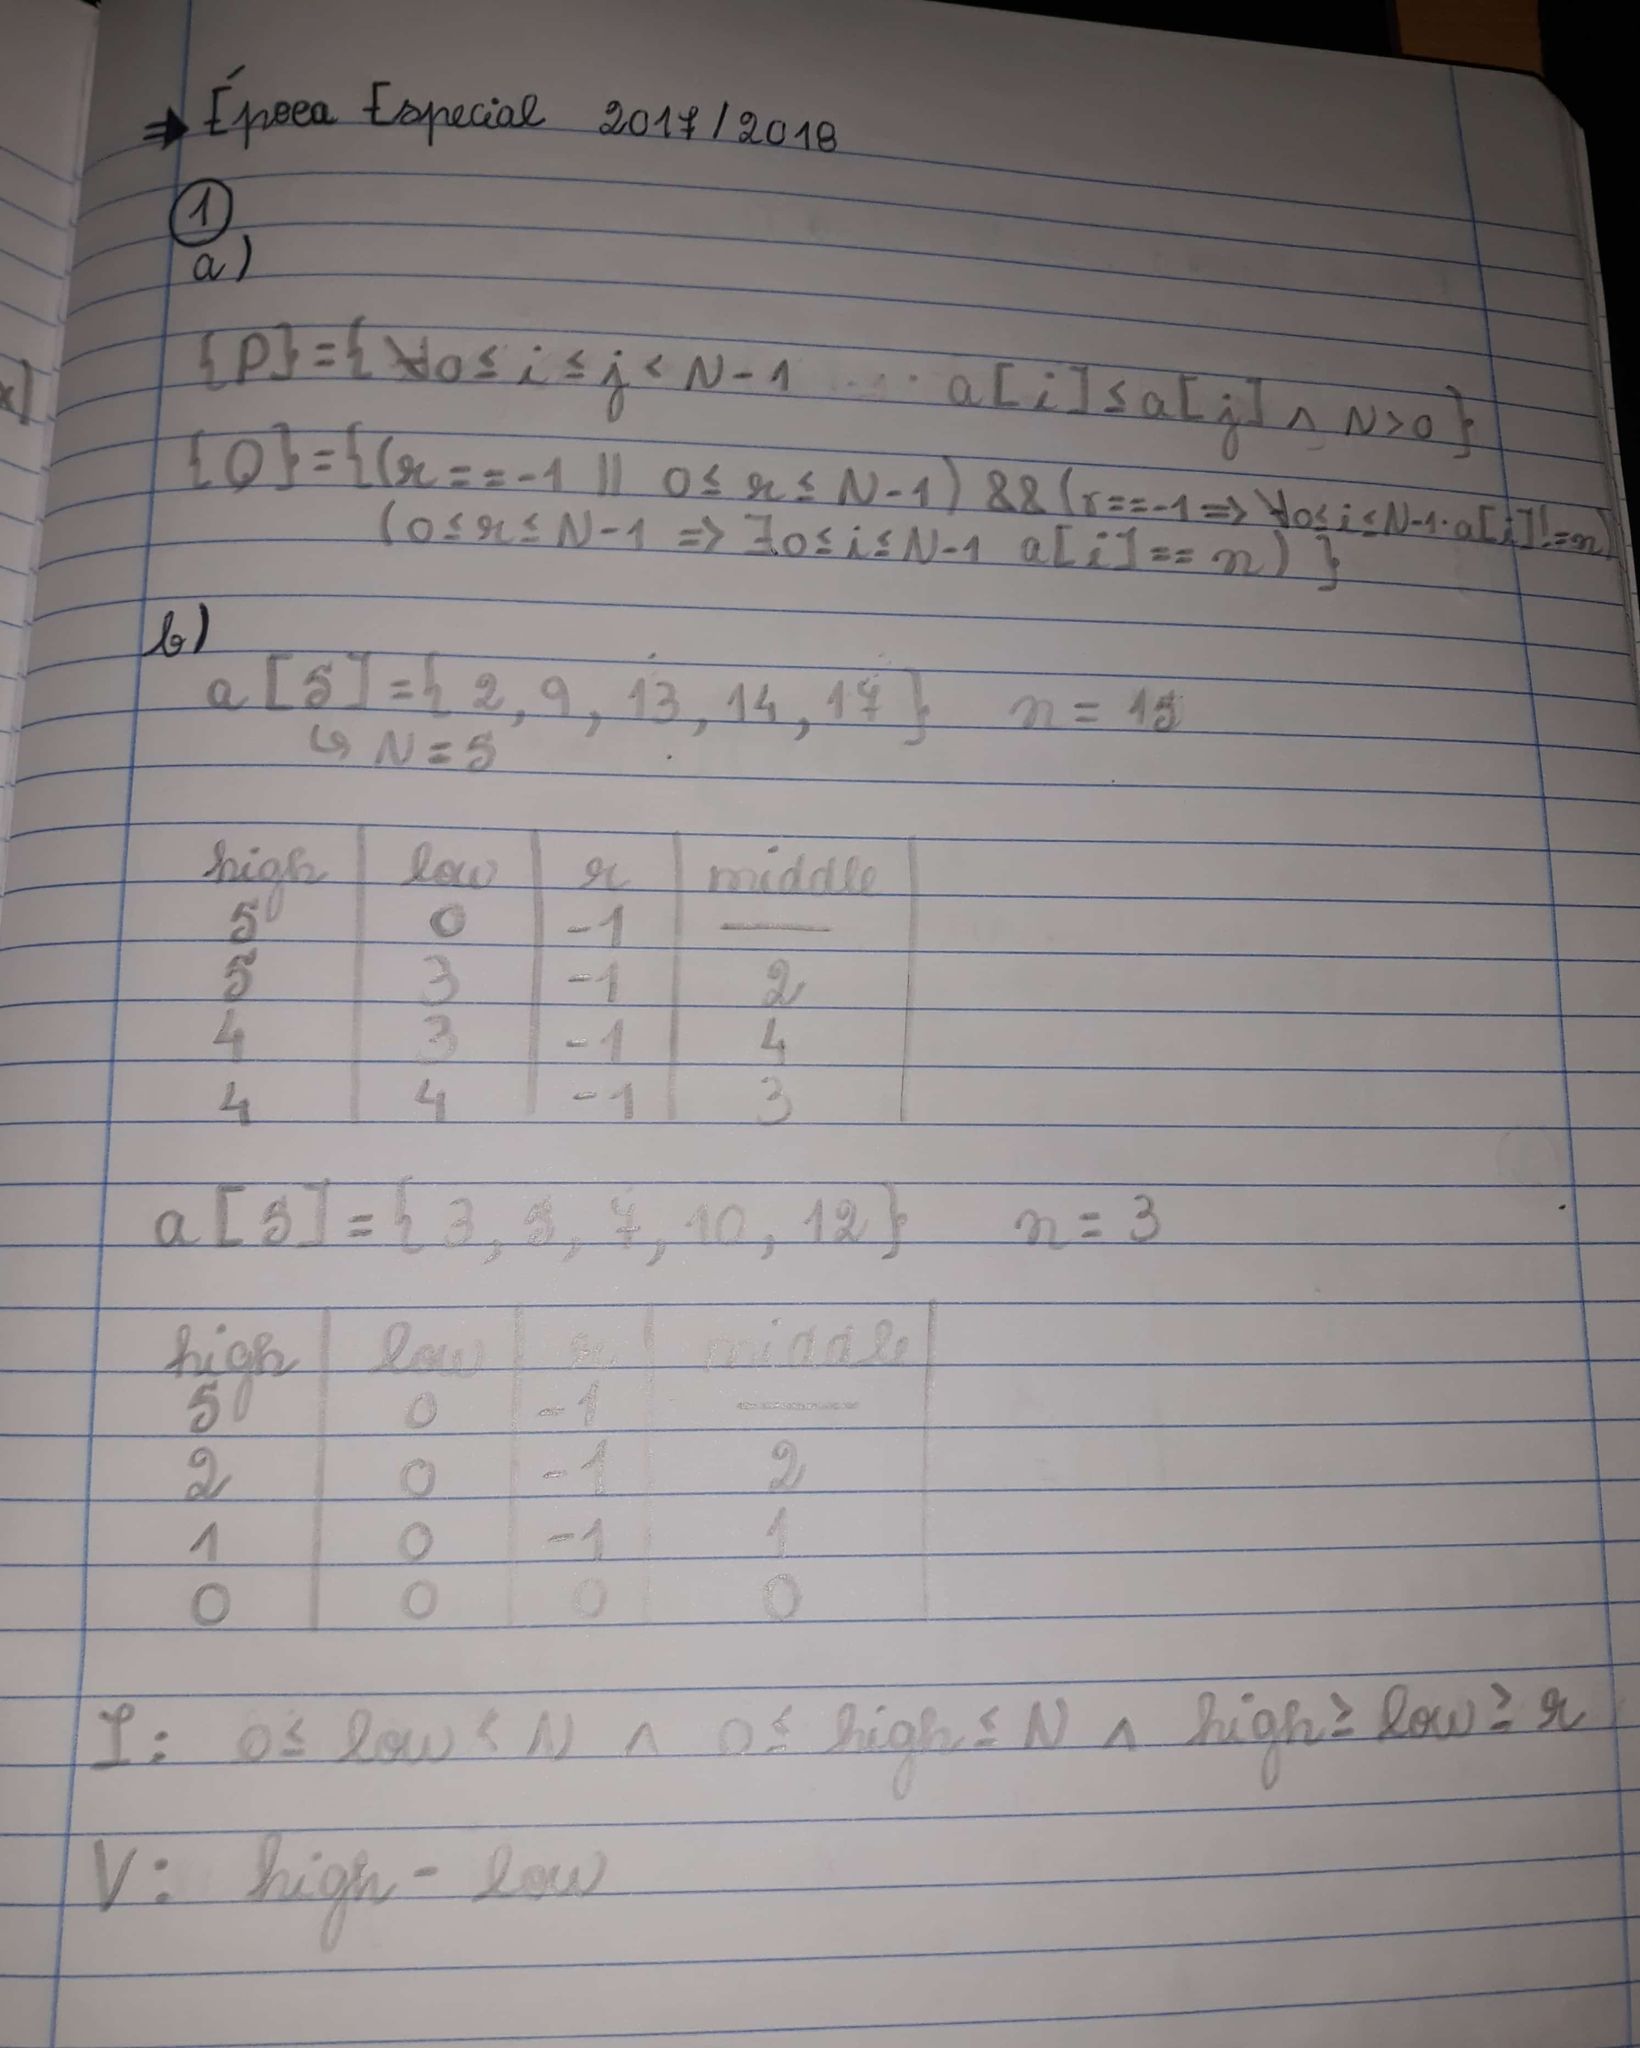 ⇒ Época Especial 2017/2018
1
a)
{P}={∀0≤i≤j<N-1 a[i]≤a[j] ∧ N>0}
{Q}={(r==-1 || 0≤r≤N-1) && (r==-1 => ∀0≤i≤N-1·a[i]!=n)
(0≤r≤N-1 => ∃0≤i≤N-1 a[i]==n)}
b)
a[5]={2, 9, 13, 14, 17} n=15
↳ N=5
high low r middle
5 0 -1 —
5 3 -1 2
4 3 -1 4
4 4 -1 3
a[5]={3, 5, 7, 10, 12} n=3
high low r middle
5 0 -1 —
2 0 -1 2
1 0 -1 1
0 0 0 0
I: 0≤low<N ∧ 0≤high≤N ∧ high≥low≥r
V: high-low